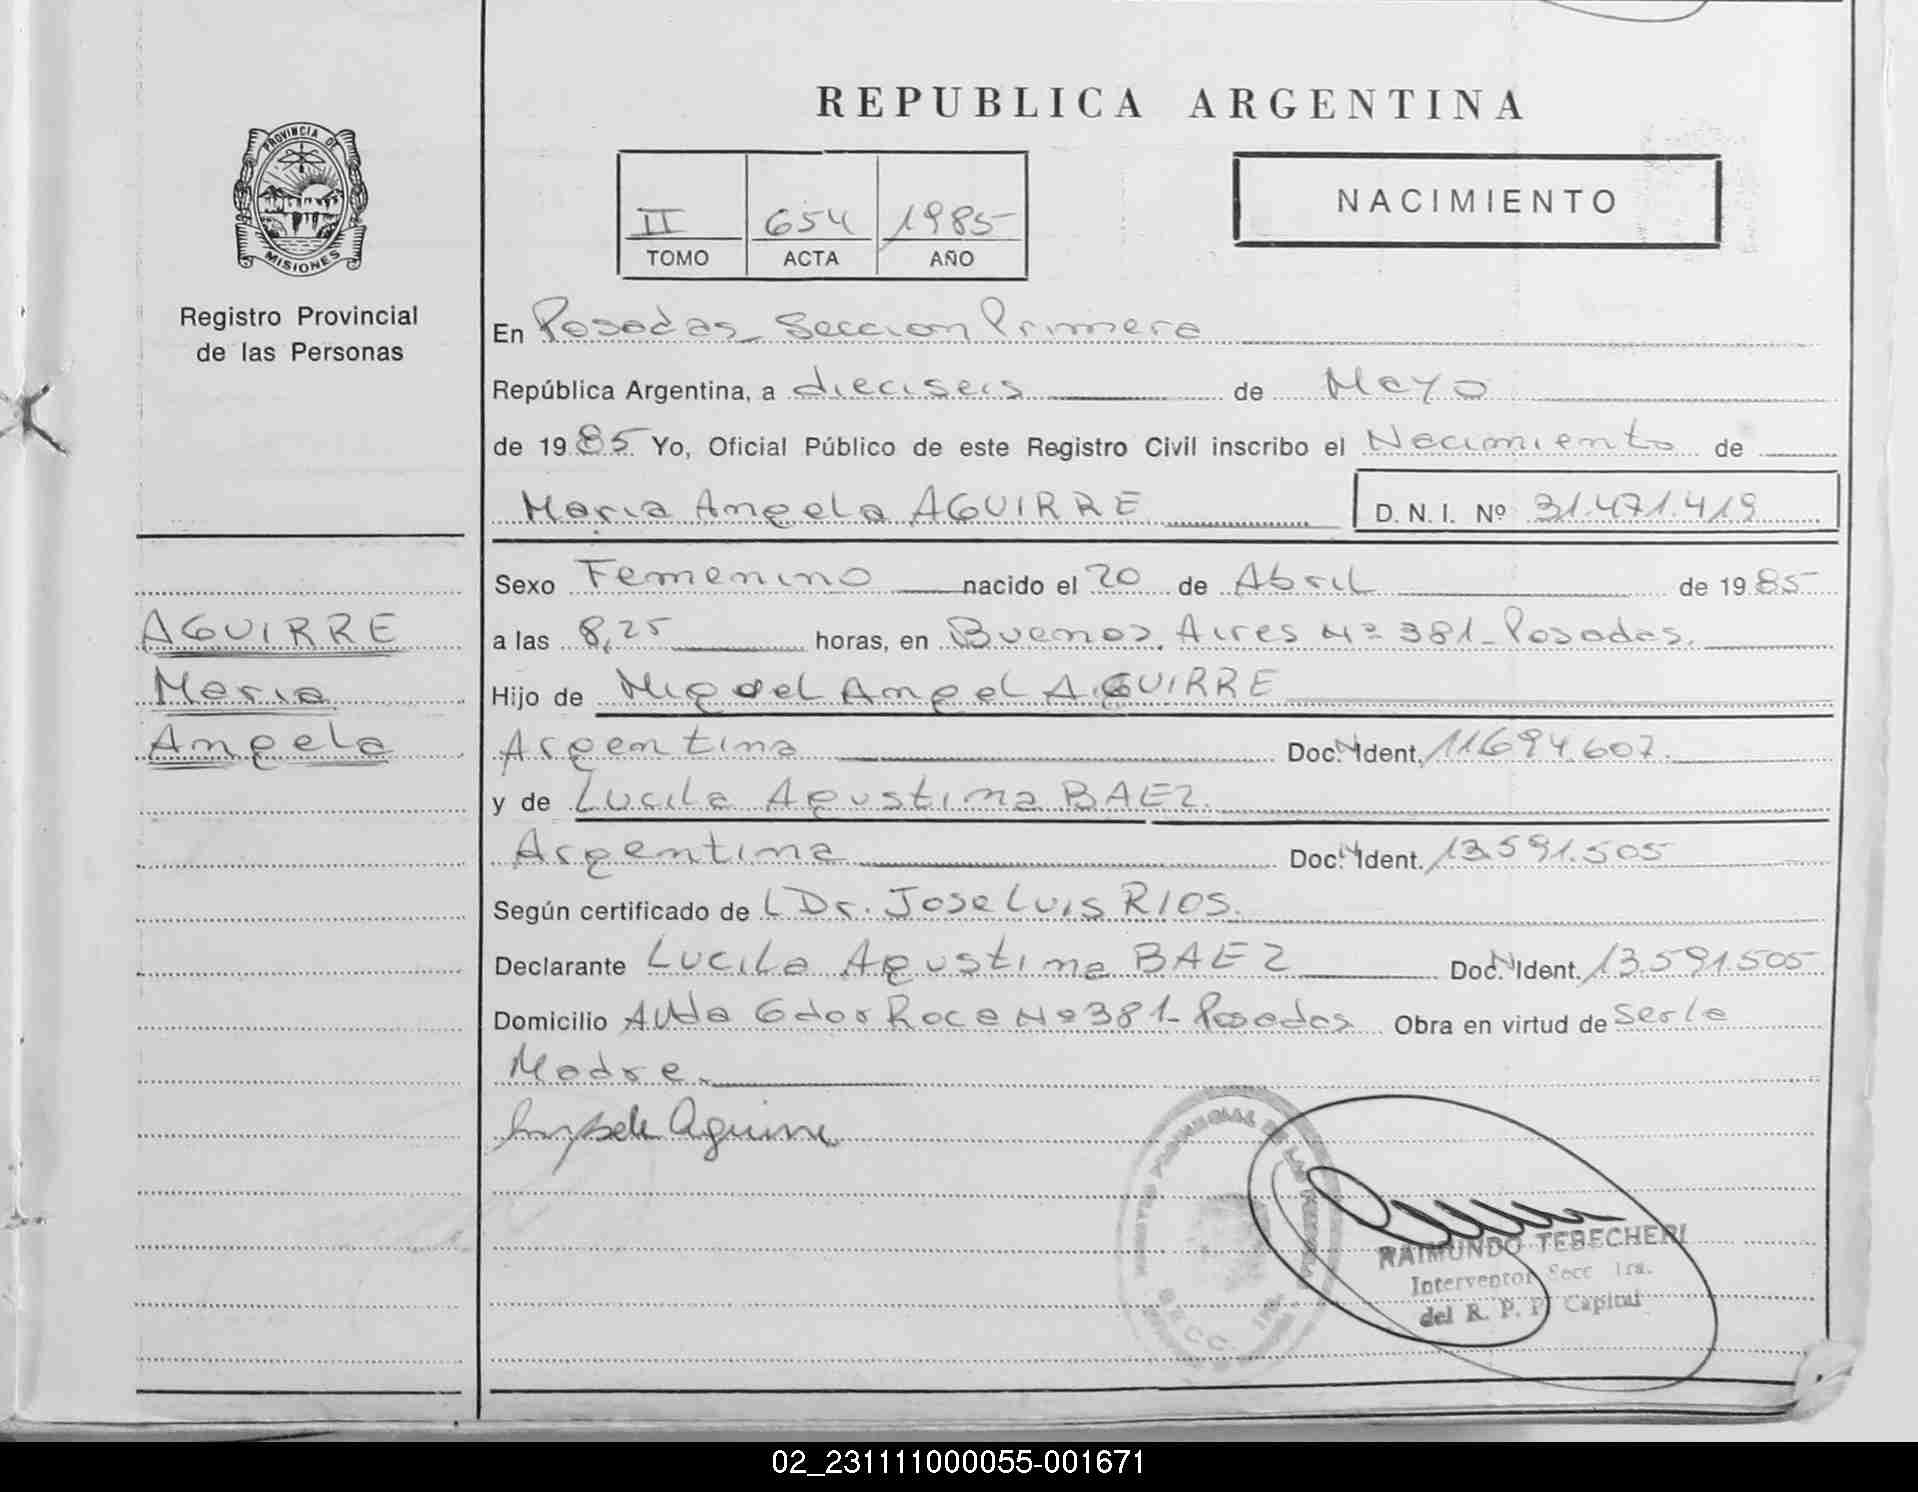 REPUBLICA ARGENTINA
PROVINCIA DE
MISIONES
Registro Provincial
de las Personas
II 654 1985
TOMO ACTA AÑO
NACIMIENTO
En Posadas Seccion Primera
República Argentina, a dieciseis de Mayo
de 1985 Yo, Oficial Público de este Registro Civil inscribo el Nacimiento de
Maria Angela AGUIRRE D.N.I. Nº 31.471.419
Sexo Femenino nacido el 20 de Abril de 1985
AGUIRRE
a las 8,25 horas, en Buenos Aires Nº 381- Posadas.
Maria
Hijo de Miguel Angel AGUIRRE
Angela
Argentina Doc. N Ident. 11694.607.
y de Lucila Agustina BAEZ.
Argentina Doc. N Ident. 13.591.505
Según certificado de L Dr. Jose Luis RIOS.
Declarante Lucila Agustina BAEZ Doc. N Ident. 13.591.505
Domicilio Avda Gdor Roca Nº 381- Posadas Obra en virtud de Ser la
Madre.
Aguirre
PROVINCIAL DE LAS
SECC. 1RA.
RAIMUNDO TEBECHERI
Interventor Secc 1ra.
del R. P. P. Capital
02_231111000055-001671